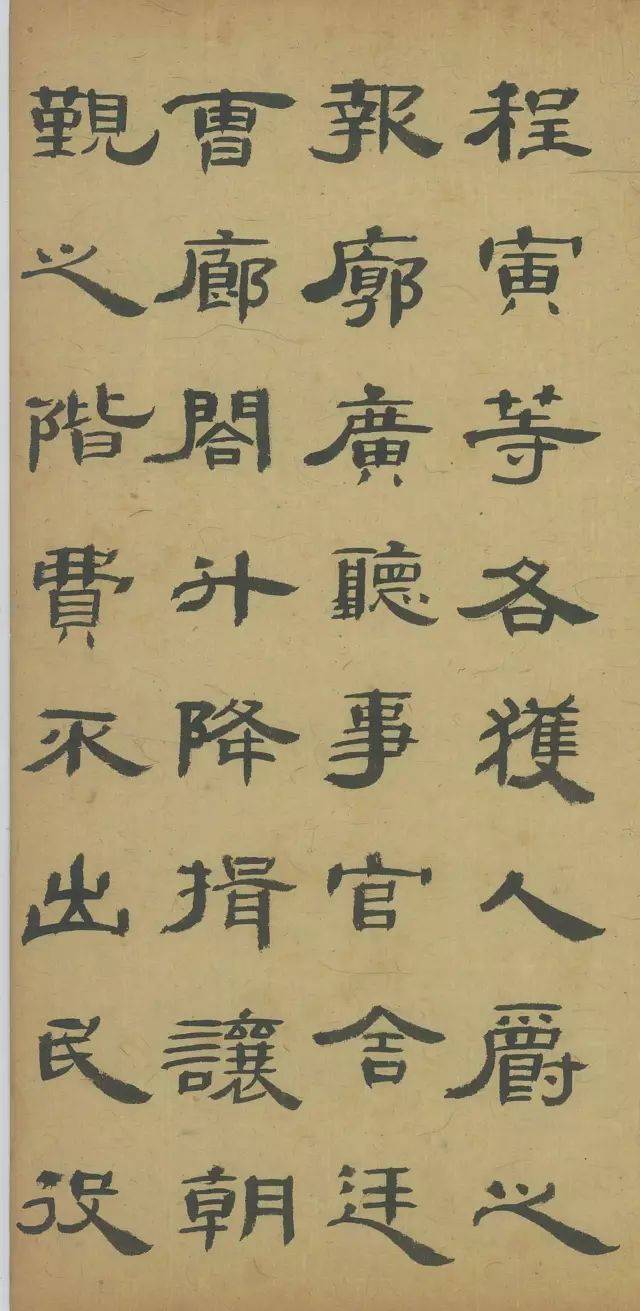 程寅等各獲人爵之
報廓廣聽事官舍廷
曹廊閤升降揖讓朝
覲之階費不出民役